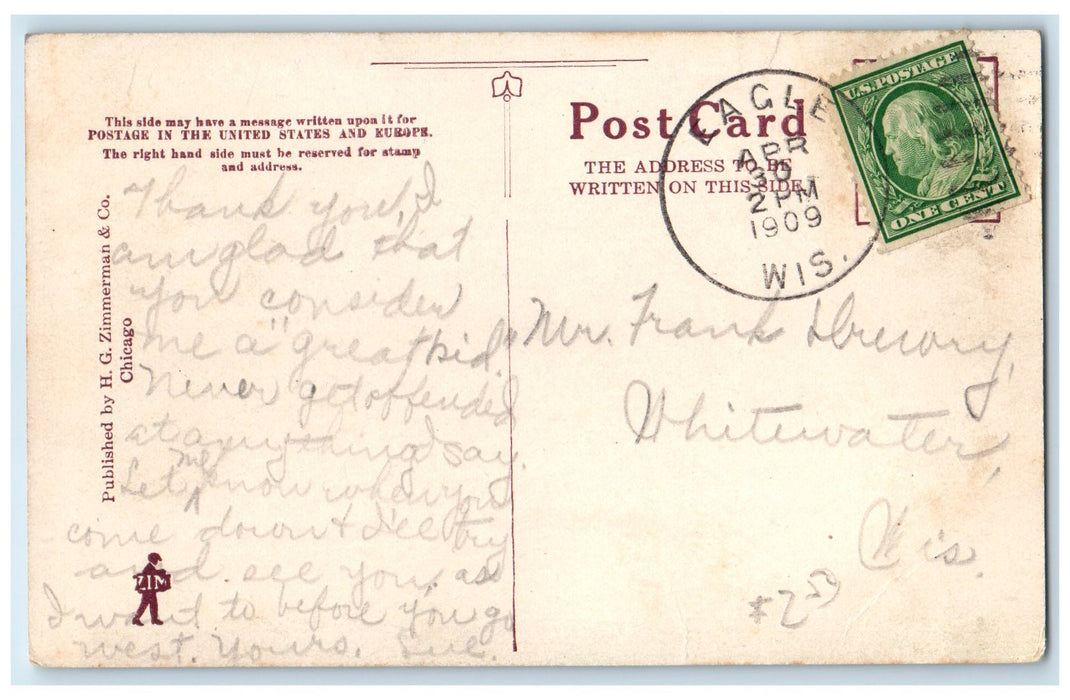 This side may have a message written upon it for
POSTAGE IN THE UNITED STATES AND EUROPE.
The right hand side must be reserved for stamp
and address.
Published by H. G. Zimmerman & Co.
Chicago
Thank you, I
am glad that
you consider
me a "great kid."
Never get offended
at anything I say.
Let me know when you
come down & I'll try
and see you, as
I want to before you go
west. Yours, Sue.
ZIM
Post Card
THE ADDRESS TO BE
WRITTEN ON THIS SIDE
EAGLE
APR
30
2 PM
1909
WIS.
U.S. POSTAGE
ONE CENT
Mr. Frank Drewry,
Whitewater,
Wis.
$2.50